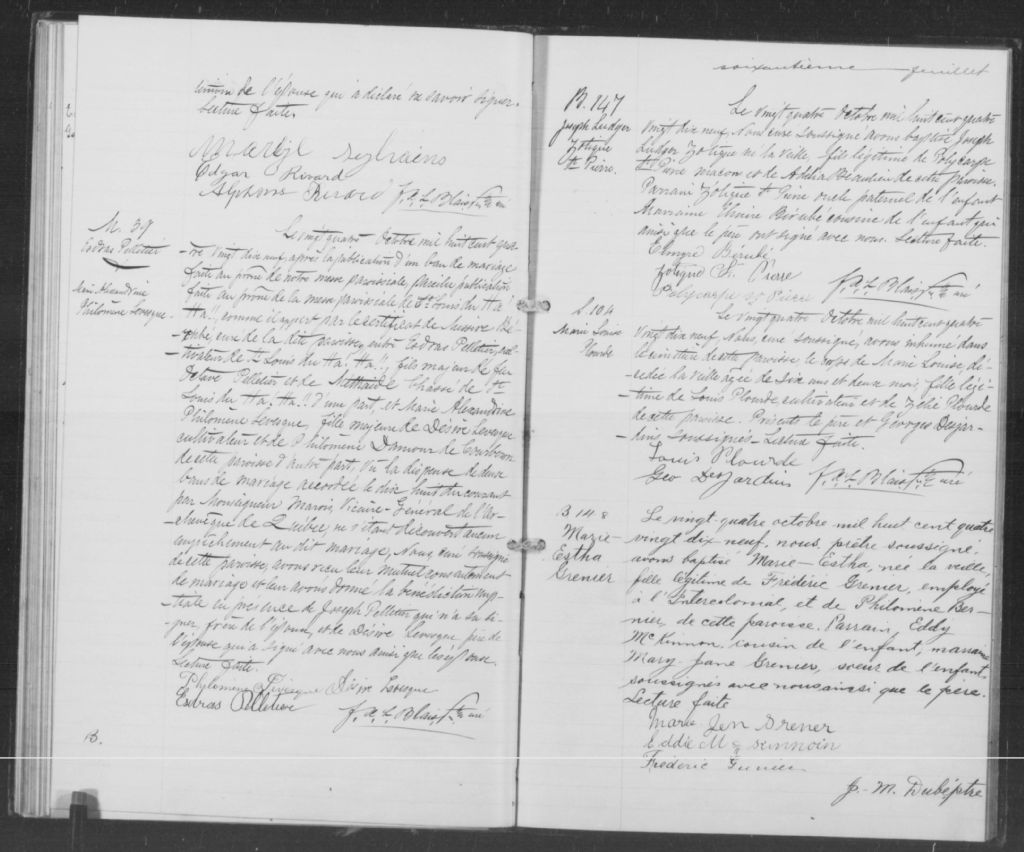 témoin de l'épouse qui a déclaré ne savoir signer.
Lecture faite.
Sylvains
Edgar Rivard
Alphonse F. A. L. Blais Ptre curé
M. 39
Esdras Pelletier
Marie Alexandrine
Philomène Levesque
Le vingt quatre Octobre mil huit cent qua-
-tre vingt dix neuf, après la publication d'un ban de mariage
faite au prône de notre messe paroissiale, pareille publication
faite au prône de la messe paroissiale de St Louis du Ha!
Ha!!, comme il appert par le certificat de Messire Bé-
-rubé, curé de la dite paroisse, entre Esdras Pelletier, cul-
-tivateur de St Louis du Ha! Ha!!, fils majeur de feu
Octave Pelletier et de Mathilde Chassé de St
Louis du Ha! Ha!! d'une part, et Marie Alexandrine
Philomène Levesque, fille majeure de Désiré Levesque
cultivateur et de Philomène Damour de
de cette paroisse d'autre part; vu la dispense de deux
bans de mariage accordée le dix huit du courant
par Monseigneur Marois, Vicaire-Général de l'Ar-
-chevêque de Québec, ne s'étant découvert aucun
empêchement au dit mariage, Nous, curé soussigné
de cette paroisse, avons reçu leur mutuel consentement
de mariage et leur avons donné la bénédiction nup-
-tiale en présence de Joseph Pelletier qui n'a su si-
-gner, frère de l'époux, et de Désiré Levesque père de
l'épouse qui a signé avec nous ainsi que les époux.
Lecture faite.
Phylomène Lévesque Désiré Levesque
Esdras Pelletier F. A. L. Blais Ptre curé
B.
soixantième feuillet
B. 147
Joseph Ludger
Zotique
St Pierre.
Le vingt quatre Octobre mil huit cent quatre
vingt dix neuf, Nous curé soussigné avons baptisé Joseph
Ludger Zotique né la veille, fils légitime de Polycarpe
St Pierre maçon et de Beaulieu de cette paroisse.
Parrain Zotique St Pierre oncle paternel de l'enfant
Marraine Elmire Bérubé cousine de l'enfant qui
ainsi que le père ont signé avec nous. Lecture faite.
Elmyre Bérubé
Zotique St. Pierre
Polycarpe St Pierre F. A. L. Blais Ptre curé
S. 104
Marie Louise
Plourde
Le vingt quatre Octobre mil huit cent quatre
vingt dix neuf, Nous, curé soussigné, avons inhumé dans
le cimetière de cette paroisse le corps de Marie Louise, dé-
-cédée la veille agée de six ans et deux mois, fille légi-
-time de Louis Plourde cultivateur et de Zélie Plourde
de cette paroisse. Présents le père et Georges Desjar-
-dins soussignés. Lecture faite.
Louis Plourde
Geo Desjardins F. A. L. Blais Ptre curé
B 148
Marie-
Estha
Grenier
Le vingt-quatre octobre mil huit cent quatre
vingt dix neuf, nous, prêtre soussigné,
avons baptisé Marie-Estha, née la veille,
fille légitime de Frédéric Grenier, employé
à l'Intercolonial, et de Philomène Ber-
nier, de cette paroisse. Parrain, Eddy
McKinnon, cousin de l'enfant, marraine
Mary-Jane Grenier, soeur de l'enfant,
soussignés avec nous ainsi que le père.
Lecture faite
Marie Jen Grener
Eddie
Frédéric Grenier
J.-M. Dubé, ptre